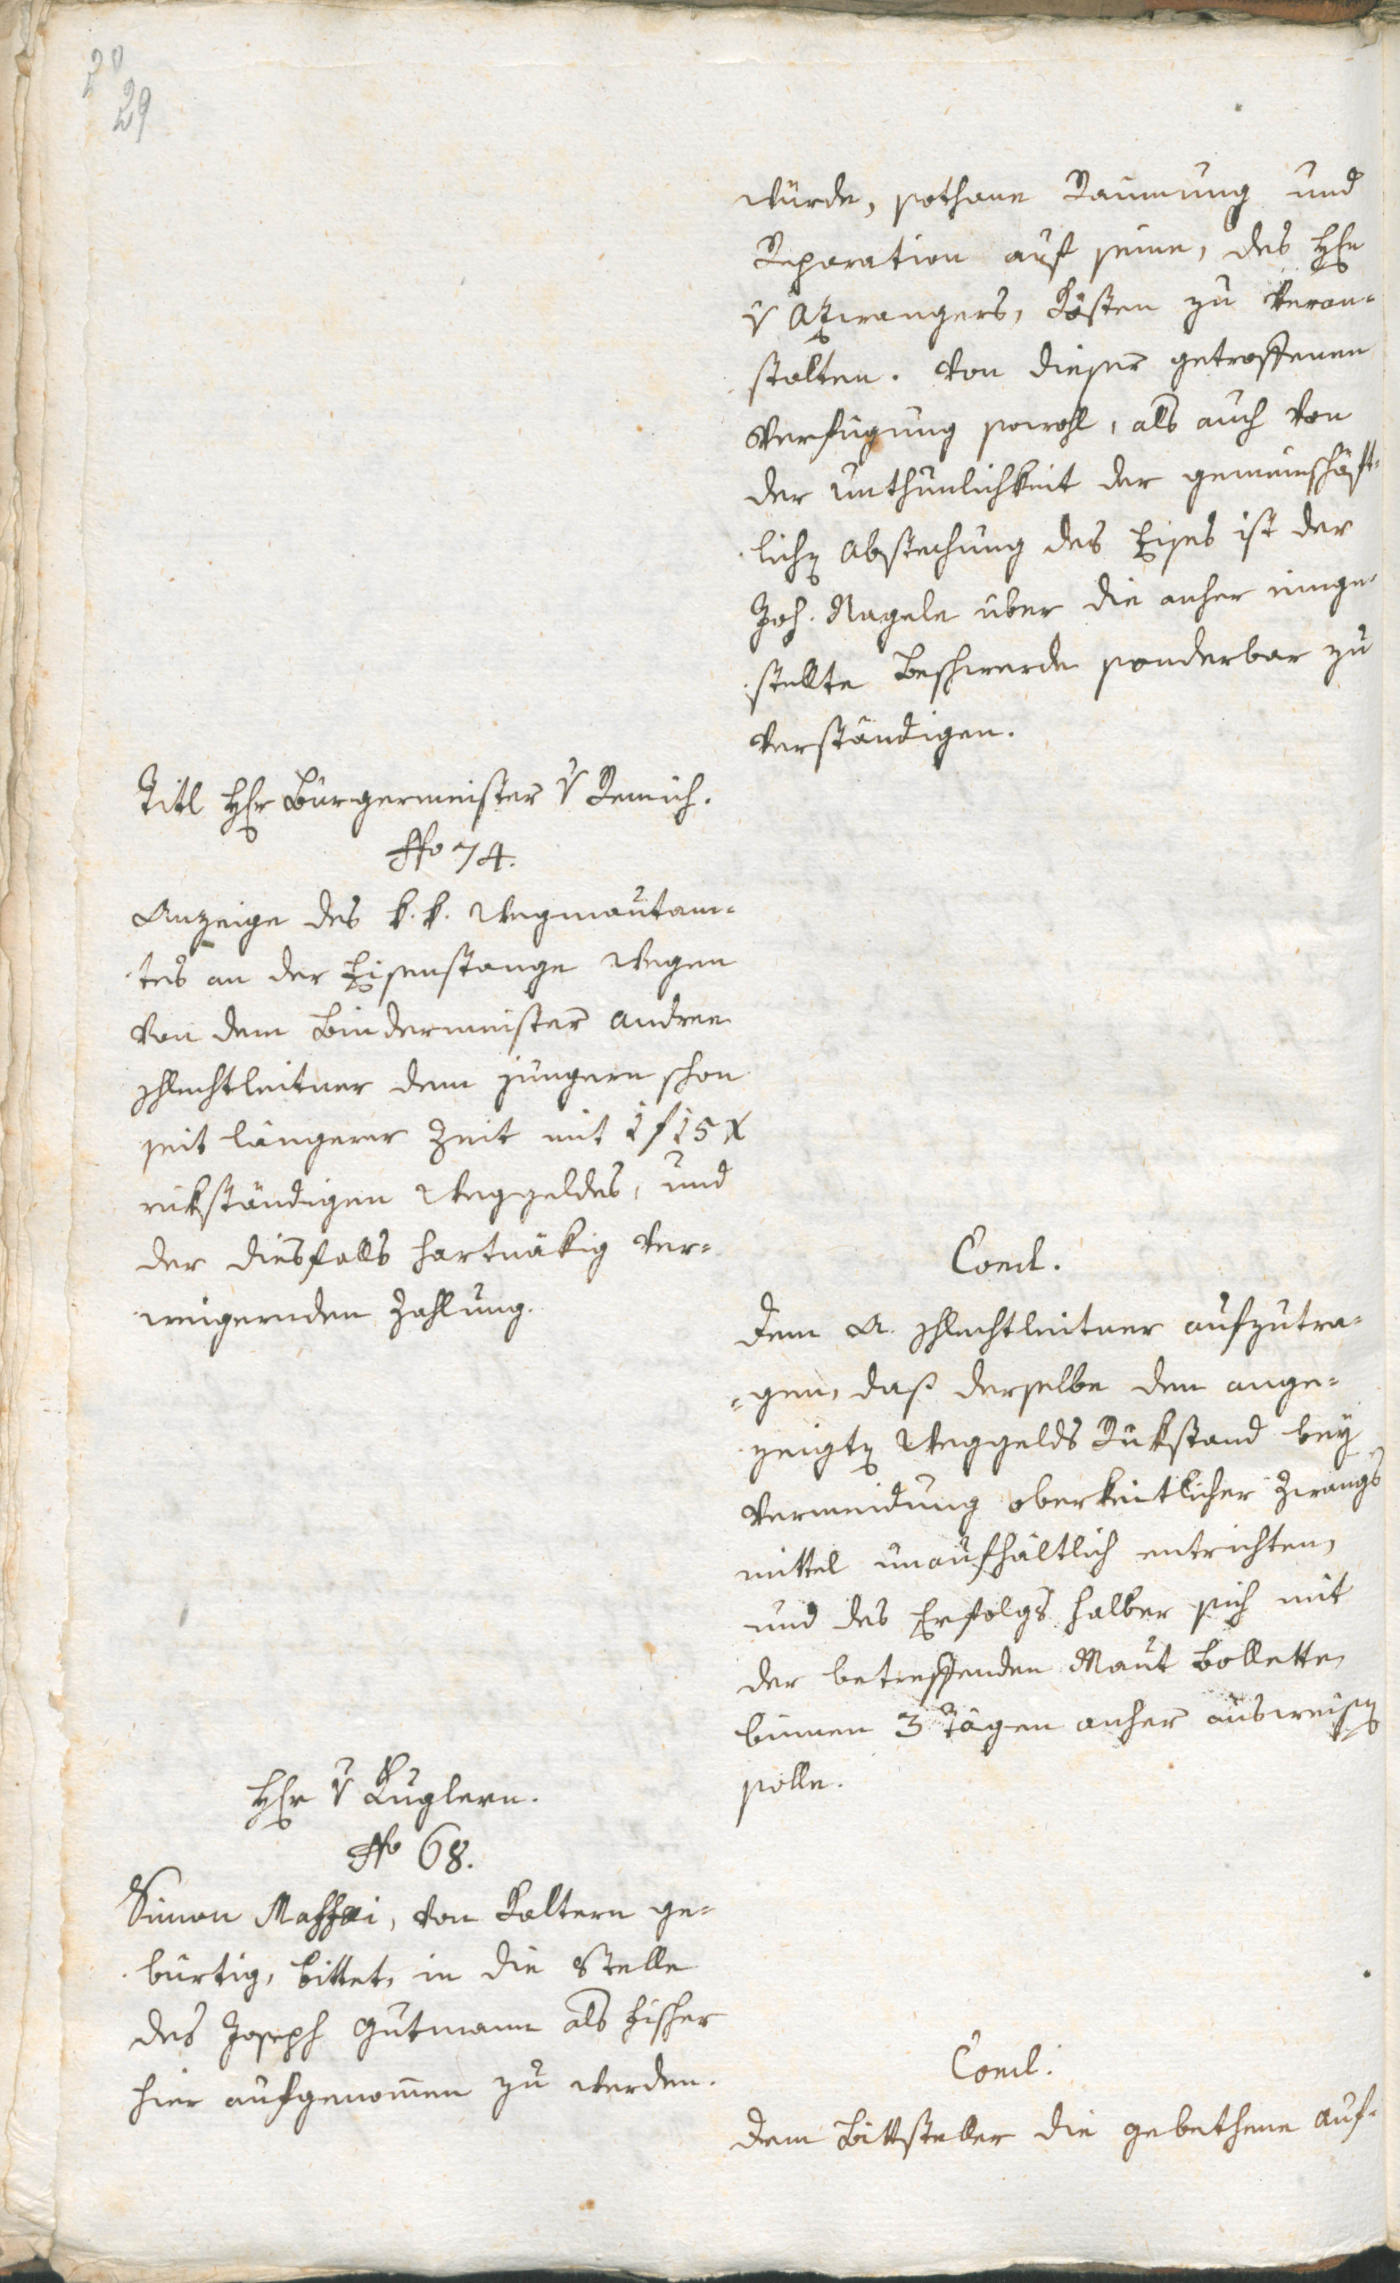 20
29
würde, sothane Raumung und
Reparation auf seine, des Hhn
v Atzwangers, Kösten zu veran-
stalten. Von dieser getroffenen
Verfügung sowohl, als auch von
der Unthunlichkeit der gemeinschäft-
lichen Abstechung des Eises ist der
Joh. Nagele über die anher einge-
stellte Beschwerde sonderbar zu
verständigen.
Titl Hhr Bürgermeister v Remich.
No 74.
Anzeige des k. k. Wegmautam-
tes an der Eisenstange wegen
von dem Bindermeister Andree
Schlechtleitner dem jüngern schon
seit längerer Zeit mit 1 f 15 x
rükständigen Weggeldes, und
der diesfalls hartnäkig ver-
weigernden Zahlung.
Concl.
Dem A. Schlechtleitner aufzutra-
gen, daß derselbe den ange-
zeigten Weggelds Rükstand bey
Vermeidung oberkeitlicher Zwangs
mittel unaufhältlich entrichten,
und des Erfolgs halber sich mit
der betreffenden Maut Bollette,
binnen 3 Tägen anher ausweisen
solle.
Hhr v Kuglern.
No 68.
Simon Maffei, von Kaltern ge-
bürtig, bittet, in die Stelle
des Joseph Gutmann als Fischer
hier aufgenomen zu werden.
Concl.
Dem Bittsteller die gebethene Auf-